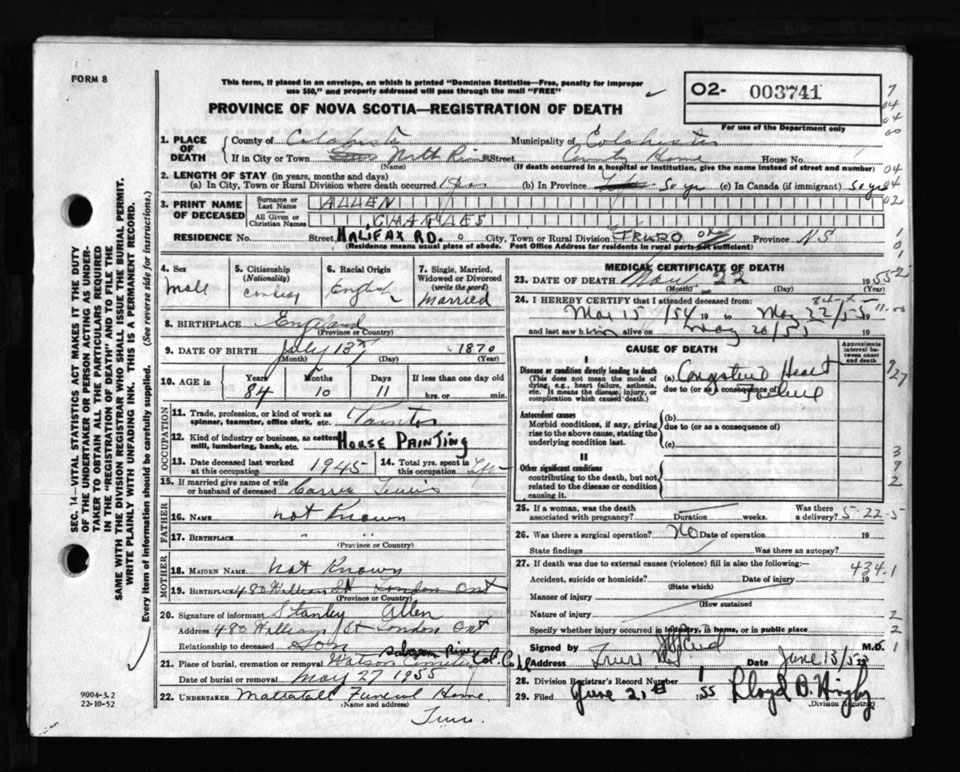 FORM 8
This form, if placed in an envelope, on which is printed "Dominion Statistics—Free, penalty for improper
use $50," and properly addressed will pass through the mail "FREE"
PROVINCE OF NOVA SCOTIA—REGISTRATION OF DEATH
02- 003741
For use of the Department only
1. PLACE OF DEATH
County of Colchester Municipality of Colchester
If in City or Town North River Street County Home House No.
(Name) (If death occurred in a hospital or institution, give the name instead of street and number)
2. LENGTH OF STAY (in years, months and days)
(a) In City, Town or Rural Division where death occurred (b) In Province 50 yr (c) In Canada (if immigrant) 50 yrs
3. PRINT NAME OF DECEASED
Surname or Last Name ALLEN
All Given or Christian Names CHARLES
RESIDENCE No. Street HALIFAX RD. City, Town or Rural Division TRURO Province NS
(Residence means usual place of abode. Post Office Address for residents in rural parts not sufficient)
4. Sex Male
5. Citizenship (Nationality)
6. Racial Origin English
7. Single, Married, Widowed or Divorced (write the word) Married
8. BIRTHPLACE England
(Province or Country)
9. DATE OF BIRTH July 13th 1870
(Month) (Day) (Year)
10. AGE in Years 84 Months 10 Days 11 If less than one day old hrs. or min.
OCCUPATION
11. Trade, profession, or kind of work as spinner, teamster, office clerk, etc. Painter
12. Kind of industry or business, as cotton mill, lumbering, bank, etc. HOUSE PAINTING
13. Date deceased last worked at this occupation 1945 14. Total yrs. spent in this occupation Life
15. If married give name of wife or husband of deceased Carrie Lewis
FATHER
16. NAME not Known
17. BIRTHPLACE " "
(Province or Country)
MOTHER
18. MAIDEN NAME Not Known
19. BIRTHPLACE 480 William St London Ont
(Province or Country)
20. Signature of informant Stanley Allen
Address 480 William St London Ont
Relationship to deceased Son
21. Place of burial, cremation or removal Watson Cemetery Salmon River Col. Co.
Date of burial or removal May 27 1955
22. UNDERTAKER Mattatall Funeral Home
(Name and address)
Truro.
MEDICAL CERTIFICATE OF DEATH
23. DATE OF DEATH May 22 1955
(Month) (Day)
24. I HEREBY CERTIFY that I attended deceased from:
Mar 15/54 19 to May 22/55 19
and last saw him alive on May 20/55 19
CAUSE OF DEATH
Approximate interval between onset and death
I
Disease or condition directly leading to death
(This does not mean the mode of dying, e.g., heart failure, asthenia, etc. It means the disease, injury, or complication which caused death.)
(a) Congestive Heart Failure
due to (or as a consequence of)
Antecedent causes
Morbid conditions, if any, giving rise to the above cause, stating the underlying condition last.
(b)
due to (or as a consequence of)
(c)
II
Other significant conditions
contributing to the death, but not related to the disease or condition causing it.
25. If a woman, was the death associated with pregnancy? Duration weeks. Was there a delivery?
5-22-5
26. Was there a surgical operation? No Date of operation 19
State findings Was there an autopsy?
27. If death was due to external causes (violence) fill in also the following:—
434.1
Accident, suicide or homicide? Date of injury 19
(State which)
Manner of injury
(How sustained
Nature of injury
Specify whether injury occurred in industry, in home, or in public place
Signed by M.D.
Address Truro NS Date June 15/55
28. Division Registrar's Record Number
29. Filed June 21st 1955 Lloyd B. Higby
Division Registrar
9004-3.2
22-10-52
SEC. 14—VITAL STATISTICS ACT MAKES IT THE DUTY
OF THE UNDERTAKER OR PERSON ACTING AS UNDER-
TAKER TO OBTAIN ALL THE PARTICULARS REQUIRED
IN THE "REGISTRATION OF DEATH" AND TO FILE THE
SAME WITH THE DIVISION REGISTRAR WHO SHALL ISSUE THE BURIAL PERMIT.
WRITE PLAINLY WITH UNFADING INK. THIS IS A PERMANENT RECORD.
Every item of information should be carefully supplied. (See reverse side for instructions.)